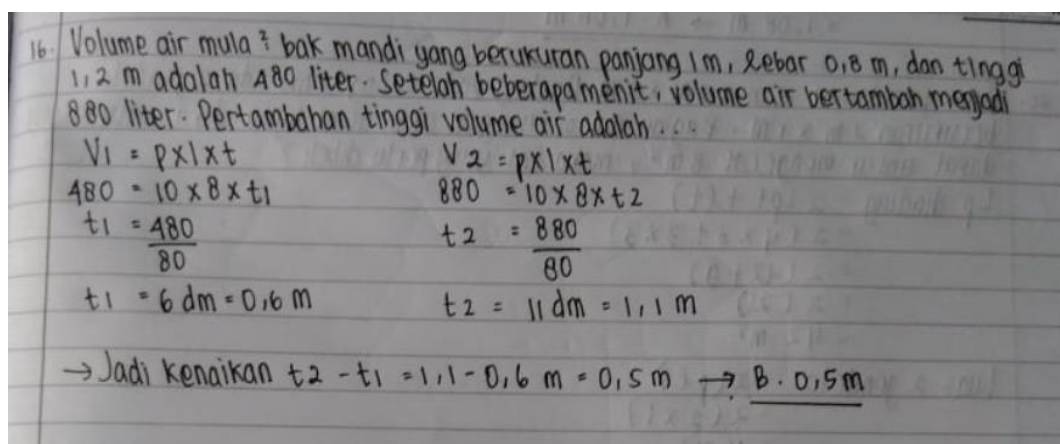 16. Volume air mula² bak mandi yang berukuran panjang 1m, lebar 0,8 m, dan tinggi
1,2 m adalah 480 liter. Setelah beberapa menit, volume air bertambah menjadi
880 liter. Pertambahan tinggi volume air adalah...
V1 = pxlxt V2 = pxlxt
480 = 10 x 8 x t1 880 = 10 x 8 x t2
t1 = 480 t2 = 880
80 80
t1 = 6 dm = 0,6 m t2 = 11 dm = 1,1 m
→ Jadi kenaikan t2 - t1 = 1,1 - 0,6 m = 0,5 m → B. 0,5 m